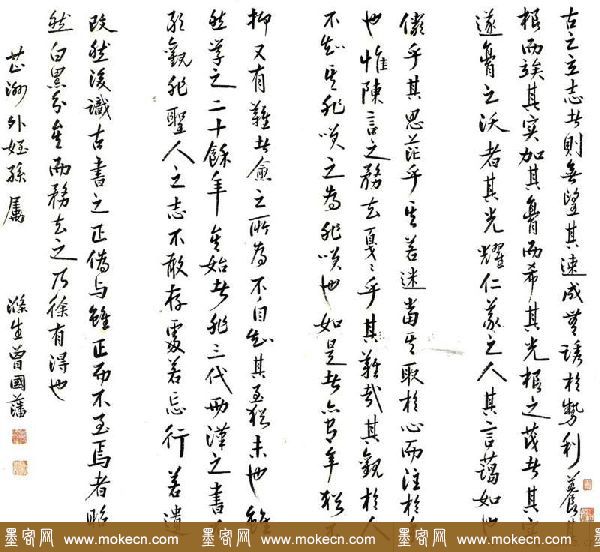 古之立志者則無望其速成無誘於勢利養
根而竢其實加其膏而希其光根之茂者其實
遂膏之沃者其光耀仁義之人其言藹如也
儼乎其思茫乎其若迷當其取於心而注於
也惟陳言之務去戛々乎其難哉其觀於人
不知其非笑之為非笑也如是者亦有年猶不
抑又有難者愈之所為不自知其至猶未也雖
然學之二十餘年矣始者非三代兩漢之書
敢觀非聖人之志不敢存處若忘行若遺
改然後識古書之正偽与雖正而不至焉者昭
然白黑分矣而務去之乃徐有得也
芷洲外姪孫屬
滌生曾國藩
墨客网 www.mokecn.com 墨客网 www.mokecn.com 墨客网 www.mokecn.com